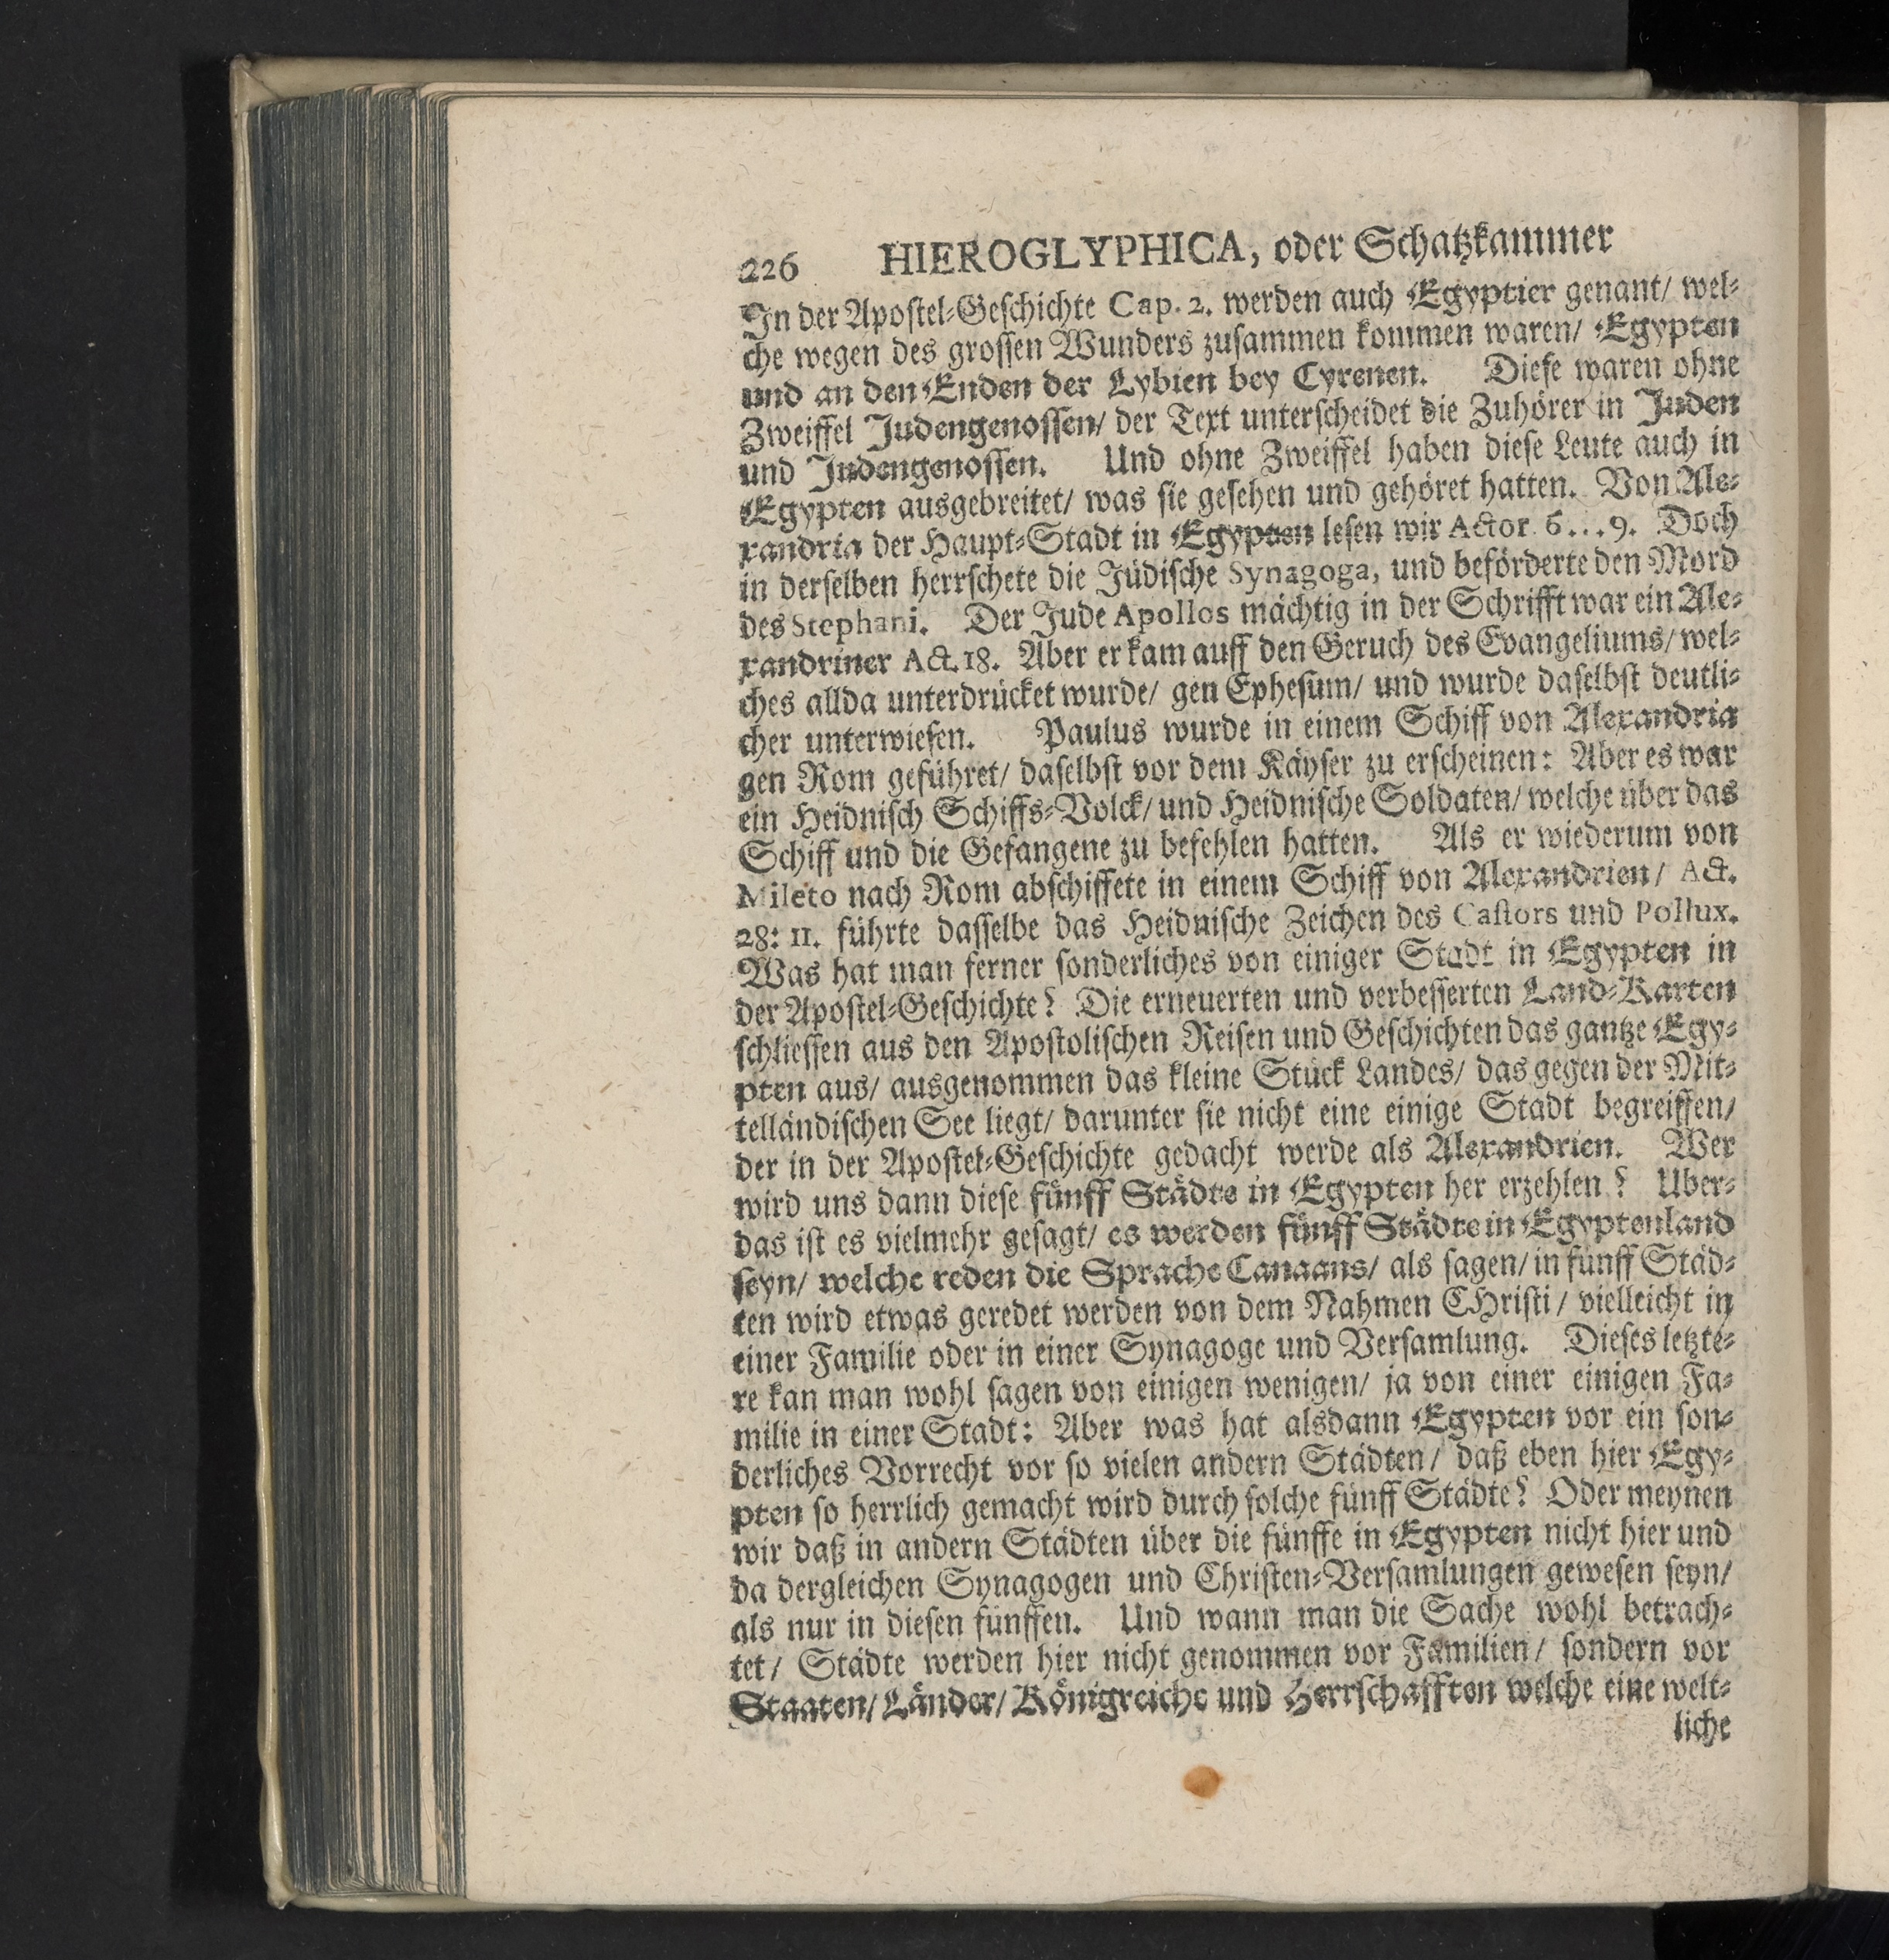 226 HIEROGLYPHICA, oder Schatzkammer
In der Apostel-Geschichte Cap. 2. werden auch Egyptier genant/ wel-
che wegen des grossen Wunders zusammen kommen waren/ Egypten
und an den Enden der Lybien bey Cyrenen. Diese waren ohne
Zweiffel Judengenossen/ der Text unterscheidet die Zuhörer in Juden
und Judengenossen. Und ohne Zweiffel haben diese Leute auch in
Egypten ausgebreitet/ was sie gesehen und gehöret hatten. Von Ale-
xandria der Haupt-Stadt in Egypten lesen wir Actor. 6...9. Doch
in derselben herrschete die Jüdische Synagoga, und beförderte den Mord
des Stephani. Der Jude Apollos mächtig in der Schrifft war ein Ale-
xandriner Act. 18. Aber er kam auff den Geruch des Evangeliums/ wel-
ches allda unterdrücket wurde/ gen Ephesum/ und wurde daselbst deutli-
cher unterwiesen. Paulus wurde in einem Schiff von Alexandria
gen Rom geführet/ daselbst vor dem Käyser zu erscheinen: Aber es war
ein Heidnisch Schiffs-Volck/ und Heidnische Soldaten/ welche über das
Schiff und die Gefangene zu befehlen hatten. Als er wiederum von
Mileto nach Rom abschiffete in einem Schiff von Alexandrien/ Act.
28: 11. führte dasselbe das Heidnische Zeichen des Castors und Pollux.
Was hat man ferner sonderliches von einiger Stadt in Egypten in
der Apostel-Geschichte? Die erneuerten und verbesserten Land-Karten
schliessen aus den Apostolischen Reisen und Geschichten das gantze Egy-
pten aus/ ausgenommen das kleine Stück Landes/ das gegen der Mit-
telländischen See liegt/ darunter sie nicht eine einige Stadt begreiffen/
der in der Apostel-Geschichte gedacht werde als Alexandrien. Wer
wird uns dann diese fünff Städte in Egypten her erzehlen? Uber-
das ist es vielmehr gesagt/ es werden fünff Städte in Egyptenland
seyn/ welche reden die Sprache Canaans/ als sagen/ in fünff Städ-
ten wird etwas geredet werden von dem Nahmen CHristi/ vielleicht in
einer Familie oder in einer Synagoge und Versamlung. Dieses letzte-
re kan man wohl sagen von einigen wenigen/ ja von einer einigen Fa-
milie in einer Stadt: Aber was hat alsdann Egypten vor ein son-
derliches Vorrecht vor so vielen andern Städten/ daß eben hier Egy-
pten so herrlich gemacht wird durch solche fünff Städte? Oder meynen
wir daß in andern Städten über die fünffe in Egypten nicht hier und
da dergleichen Synagogen und Christen-Versamlungen gewesen seyn/
als nur in diesen fünffen. Und wann man die Sache wohl betrach-
tet/ Städte werden hier nicht genommen vor Familien/ sondern vor
Staaten/ Länder/ Königreiche und Herrschafften welche eine welt-
liche